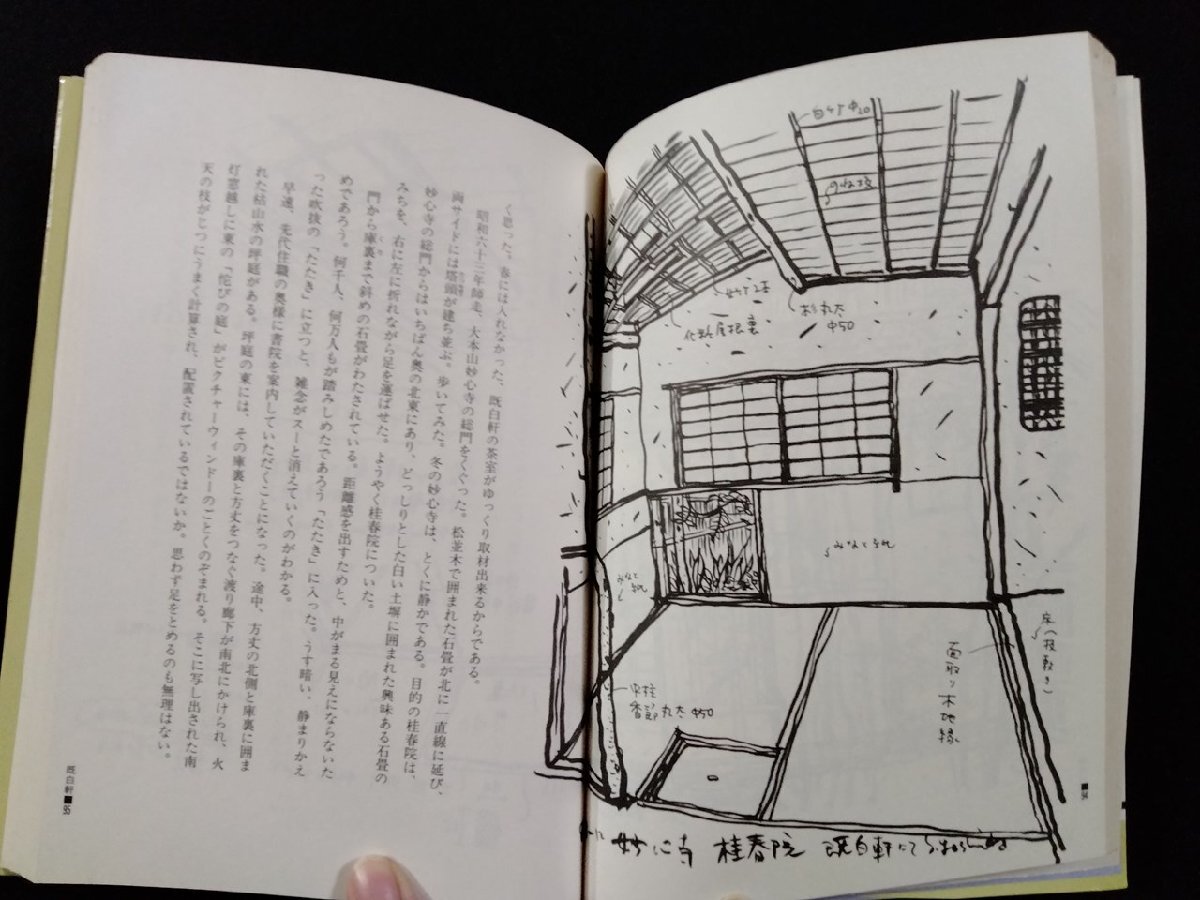 く思った。春には入れなかった、既白軒の茶室がゆっくり取材出来るからである。
昭和六十三年師走、大本山妙心寺の総門をくぐった。松並木で囲まれた石畳が北に一直線に延び、
両サイドには塔頭が建ち並ぶ。歩いてみた。冬の妙心寺は、とくに静かである。目的の桂春院は、
妙心寺の総門からはいちばん奥の北東にあり、どっしりとした白い土塀に囲まれた興味ある石畳の
みちを、右に左に折れながら足を運ばせた。ようやく桂春院についた。
門から庫裏まで斜めの石畳がわたされている。距離感を出すためと、中がまる見えにならないた
めであろう。何千人、何万人もが踏みしめたであろう「たたき」に入った。うす暗い、静まりかえ
った吹抜の「たたき」に立つと、雑念がスーと消えていくのがわかる。
早速、先代住職の奥様に書院を案内していただくことになった。途中、方丈の北側と庫裏に囲ま
れた枯山水の坪庭がある。坪庭の東には、その庫裏と方丈をつなぐ渡り廊下が南北にかけられ、火
灯窓越しに東の「侘びの庭」がピクチャーウィンドーのごとくのぞまれる。そこに写し出された南
天の枝がじつにうまく計算され、配置されているではないか。思わず足をとめるのも無理はない。
既白軒■95
白竹φ20
のね板
杉丸太
φ50
化粧屋根裏
みなと紙
みなと紙
床(板敷き)
面取り木地縁
中柱
香節丸太 φ50
■94
妙心寺 桂春院 既白軒にて